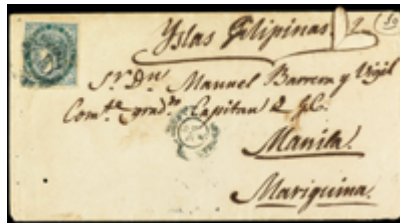 Yslas Filipinas. 2 (59)
Sr. Dn. Manuel Barrera y Vigil
Comte. gradо. Capitan
Manila.
Mariquina.